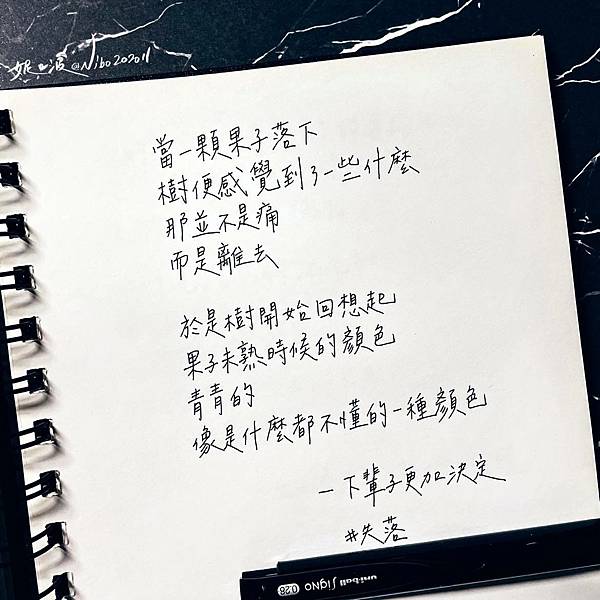 妮波@Nibo202011
當一顆果子落下
樹便感覺到了一些什麼
那並不是痛
而是離去
於是樹開始回想起
果子未熟時候的顏色
青青的
像是什麼都不懂的一種顏色
一下輩子更加決定
#失落
uni-ball SIGNO 0.28